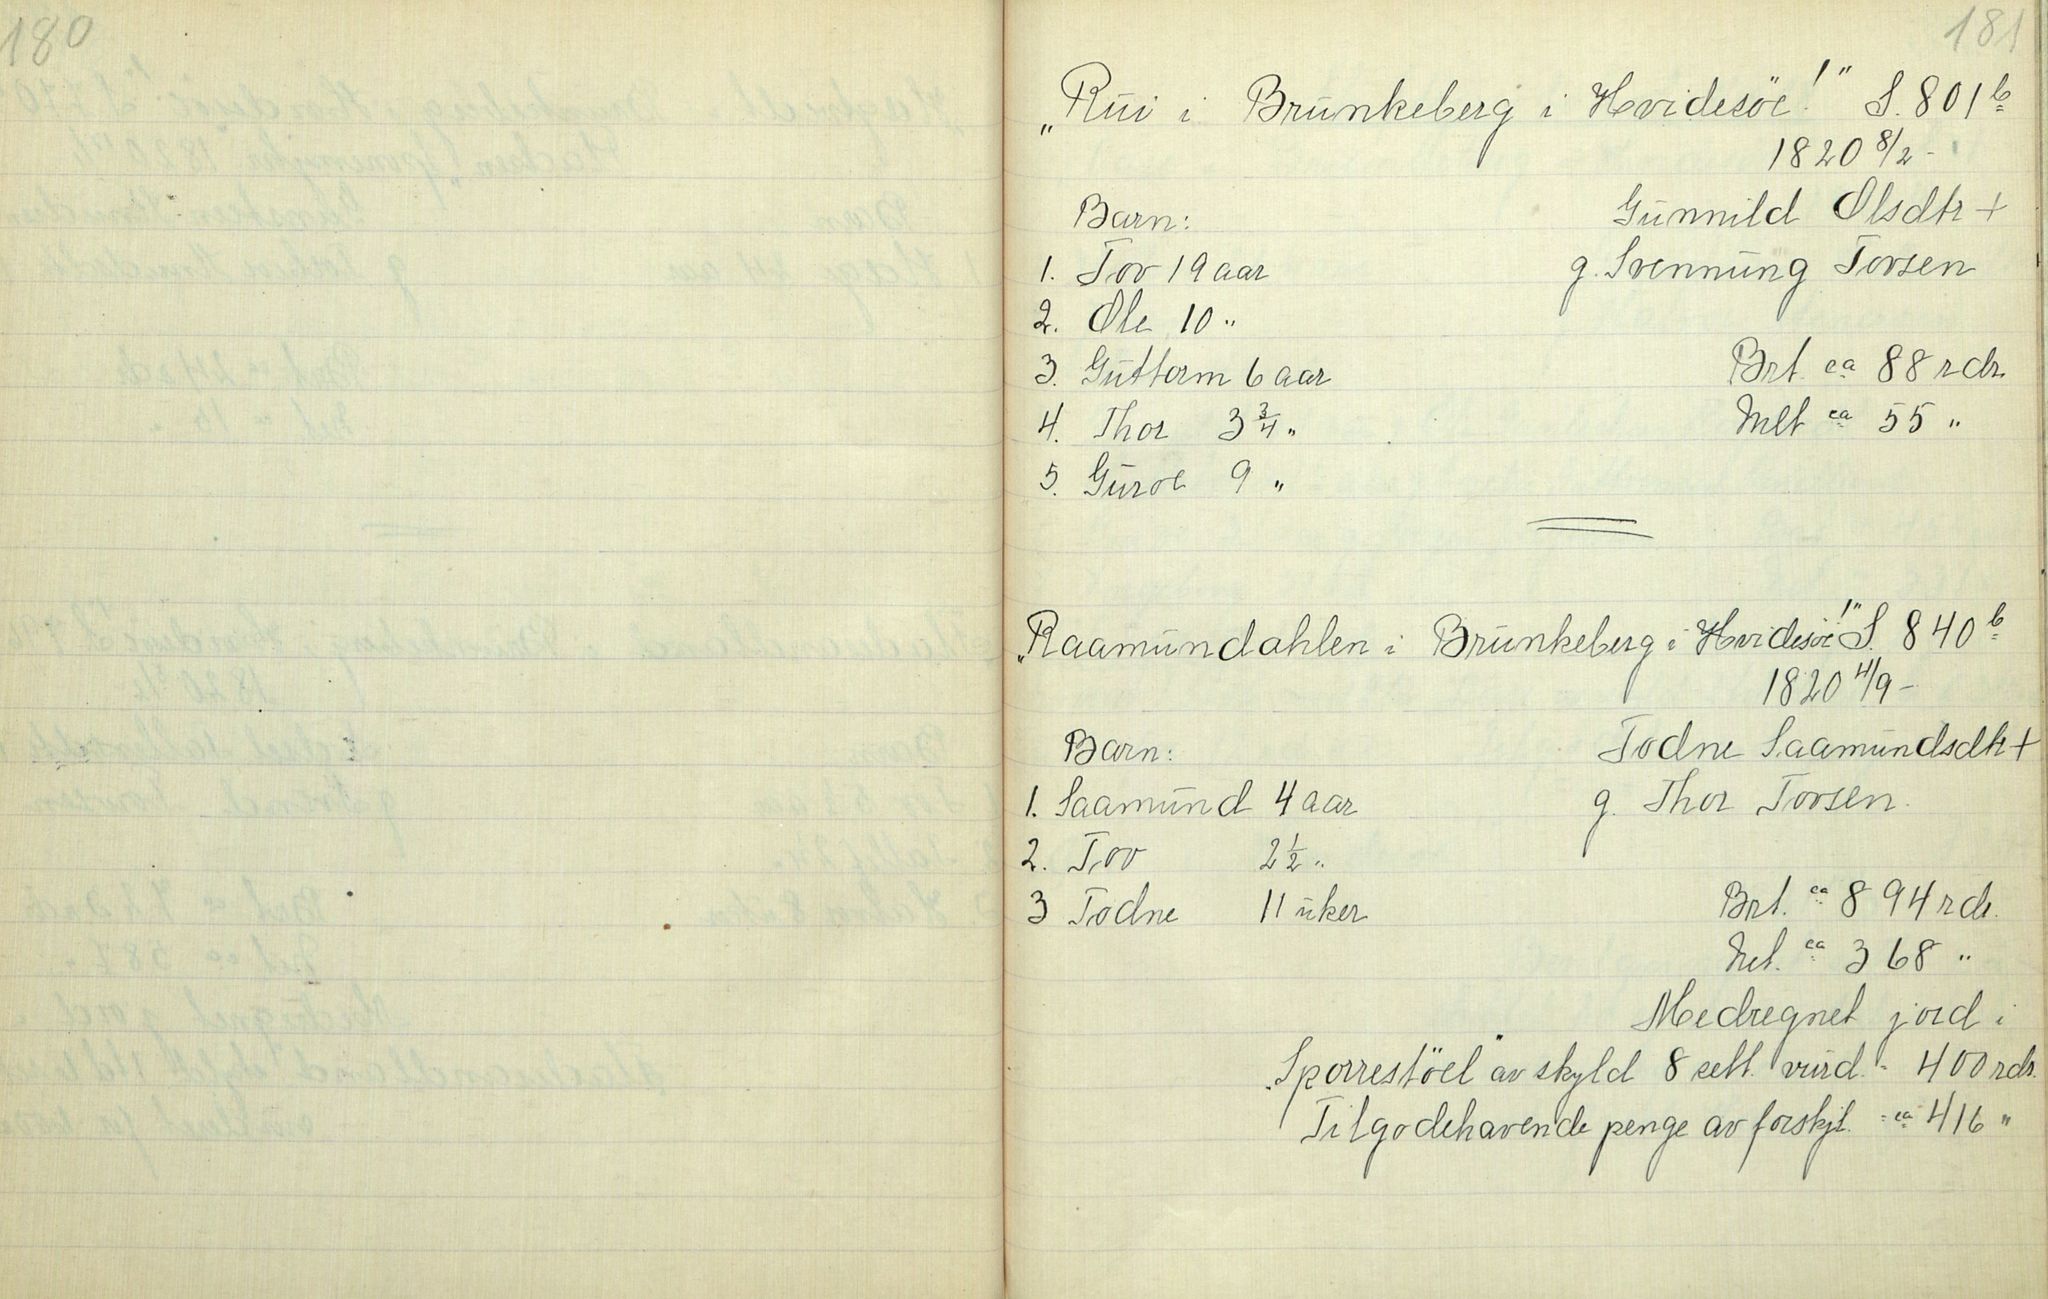 180
181
„Rui i Brunkeberg i Hvidesöe!" S. 801 b
1820 8/2 -
Barn:
Gunnild Olsdtr +
1. Tov 19 aar
g. Svennung Tovsen
2. Ole 10 "
3. Guttorm 6 aar
Brt. ca 88 rdr.
4. Thor 3 3/4 "
Net ca 55 "
5. Guroe 9 "
„Raamundahlen i Brunkeberg i Hvidesöe!" S. 840 b
1820 4/9 -
Barn:
Todne Saamundsdtr +
1. Saamund 4 aar
g. Thor Tovsen.
2. Tov 2 1/2 "
3 Todne 11 uker
Brt. ca 894 rdr.
Net. ca 368 "
Medregnet jord i
„Sporrestöel" av skyld 8 sett. vurd. - 400 rdr.
Tilgodehavende penge av forskjl. - ca 416 "